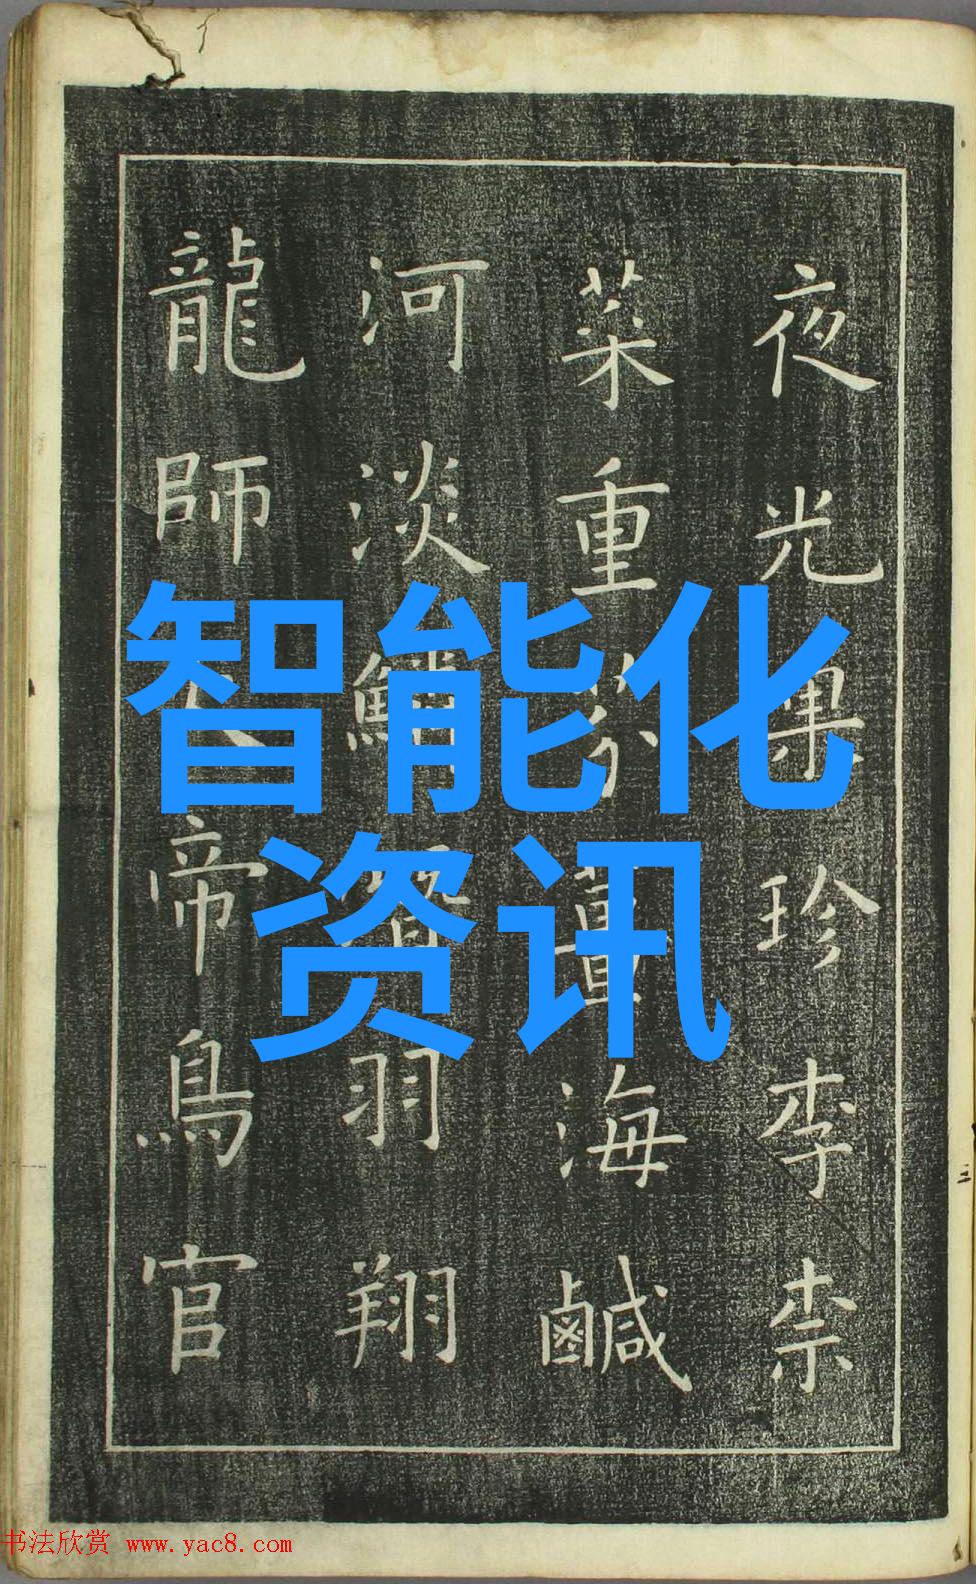 夜光果珍李柰
菜重芥薑海鹹
河淡鱗潛羽翔
龍師火帝鳥官
智能化
资讯
书法欣赏 www.yac8.com